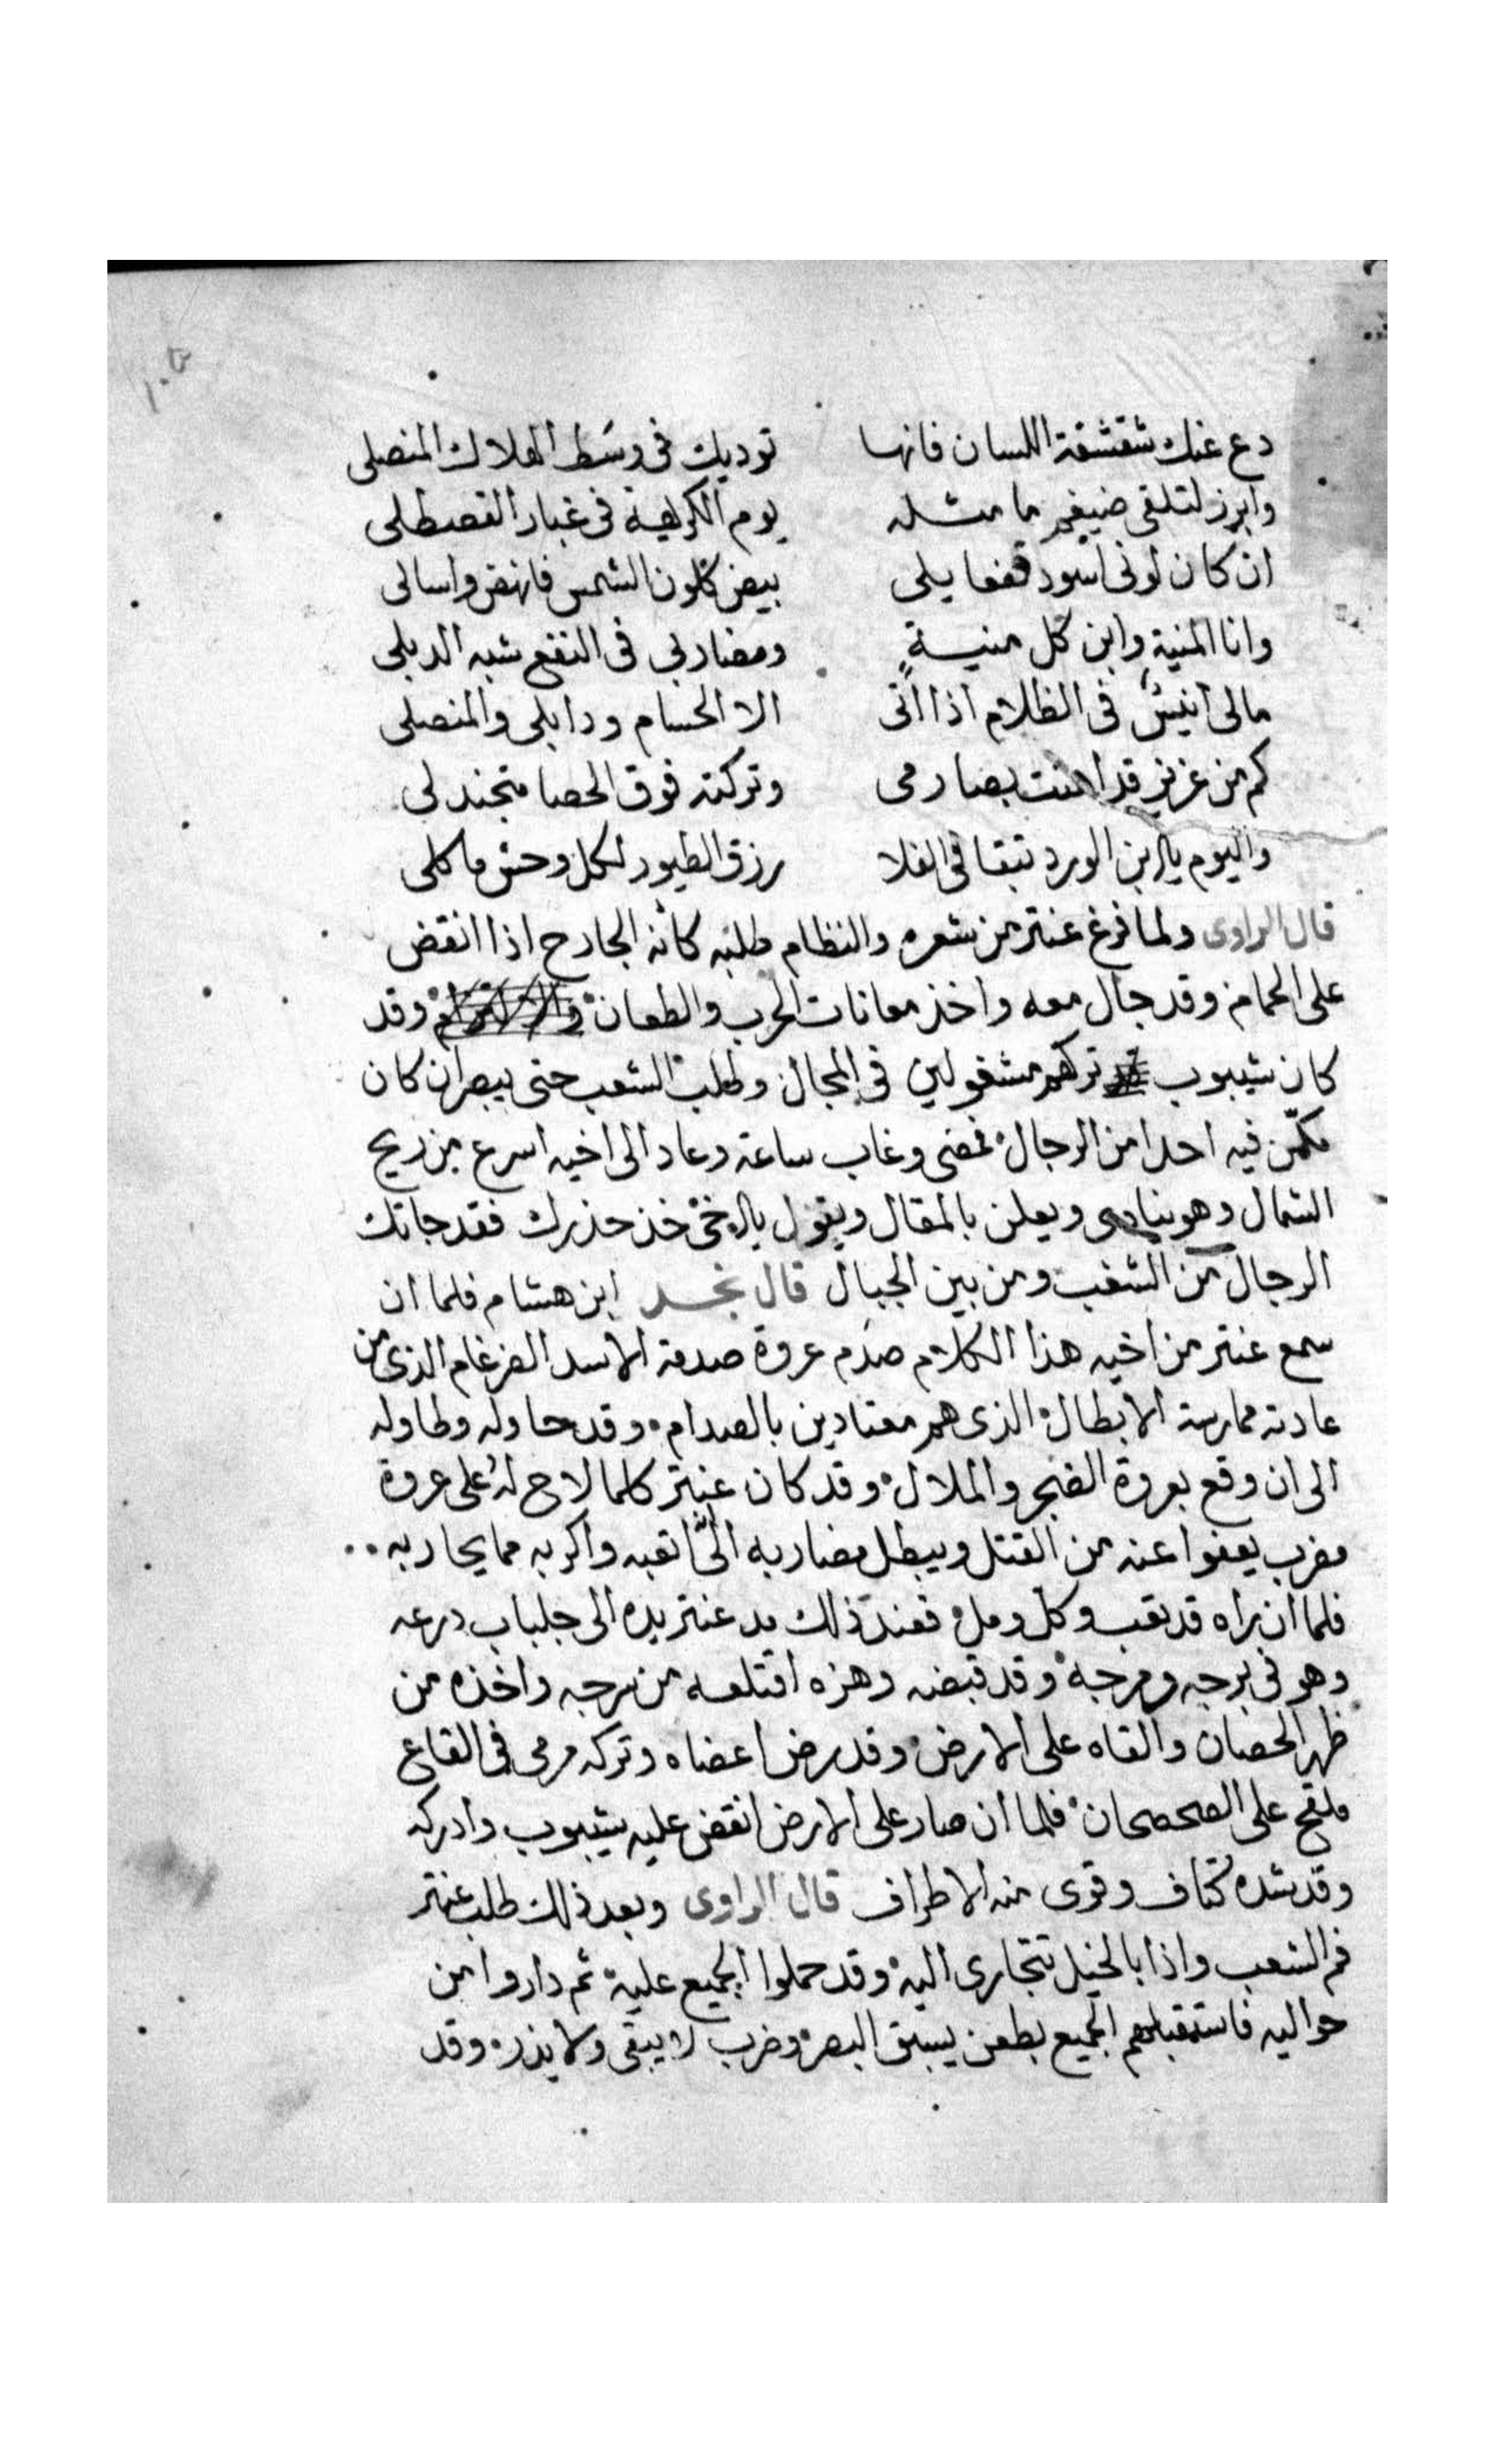 دع عنك شقشقة اللسان فانها توديك في وسط الهلاك المنصلي
وابرز لتلقى ضيغم ما مثله يوم الكريهة في غبار القصطلي
ان كان لوني اسود ففعايلي بيض كلون الشمس فانهض واسالي
وانا المنية وابن كل منيةٍ ومضاربي في النقع شبه الدبلي
مالي انيسٌ في الظلام اذا اتى الا الحسام ودابلي والمنصلي
كم من عزيز قد اهنت بصارمي وتركته فوق الحصا متجندلي
واليوم يابن الورد تبقا في الفلا رزق الطيور لكل وحش ماكلي
قال الراوى ولما فرغ عنتر من شعره والنظام طلبه كانه الجارح اذا انقض
على الحمام وقد جال معه واخذ معانات الحرب والطعان وقد
كان شيبوب تركهم مشغولين في المجال وطلب الشعب حتى يبصر ان كان
مكمّن فيه احدا من الرجال فمضى وغاب ساعة وعاد الى اخيه اسرع من ريح
الشمال وهو ينادى ويعلن بالمقال ويقول ياخى خذ حذرك فقد جاتك
الرجال من الشعب ومن بين الجبال قال نجد ابن هشام فلما ان
سمع عنتر من اخيه هذا الكلام صدم عروة صدمة الاسد الضرغام الذى من
عادته ممارسة الابطال الذى هم معتادين بالصدام وقد حاوله وطاوله
الى ان وقع بعروة الضجر والملال وقد كان عنتر كلما لاح له على عروة
مضرب يعفوا عنه من القتل ويبطل مضاربه الى ان اتعبه واكربه مما يحاربه
فلما ان راه قد تعب وكل ومل فعند ذلك مد عنتر يده الى جلباب درعه
وهو في برجه ومرجه وقد قبضه وهزه اقتلعه من سرجه واخذه من
ظهر الحصان والقاه على الارض وقد رض اعضاه وتركه مرمى في القاع
ملقح على الصحصحان فلما ان صار على الارض انقض عليه شيبوب وادركه
وقد شده كتاف وقوى منه الاطراف قال الراوى وبعد ذلك طلب عنتر
فم الشعب واذا بالخيل تتجارى اليه وقد حملوا الجميع عليه ثم داروا من
حواليه فاستقبلهم الجميع بطعن يسبق البصر وضرب لا يبقى ولا يذر وقد